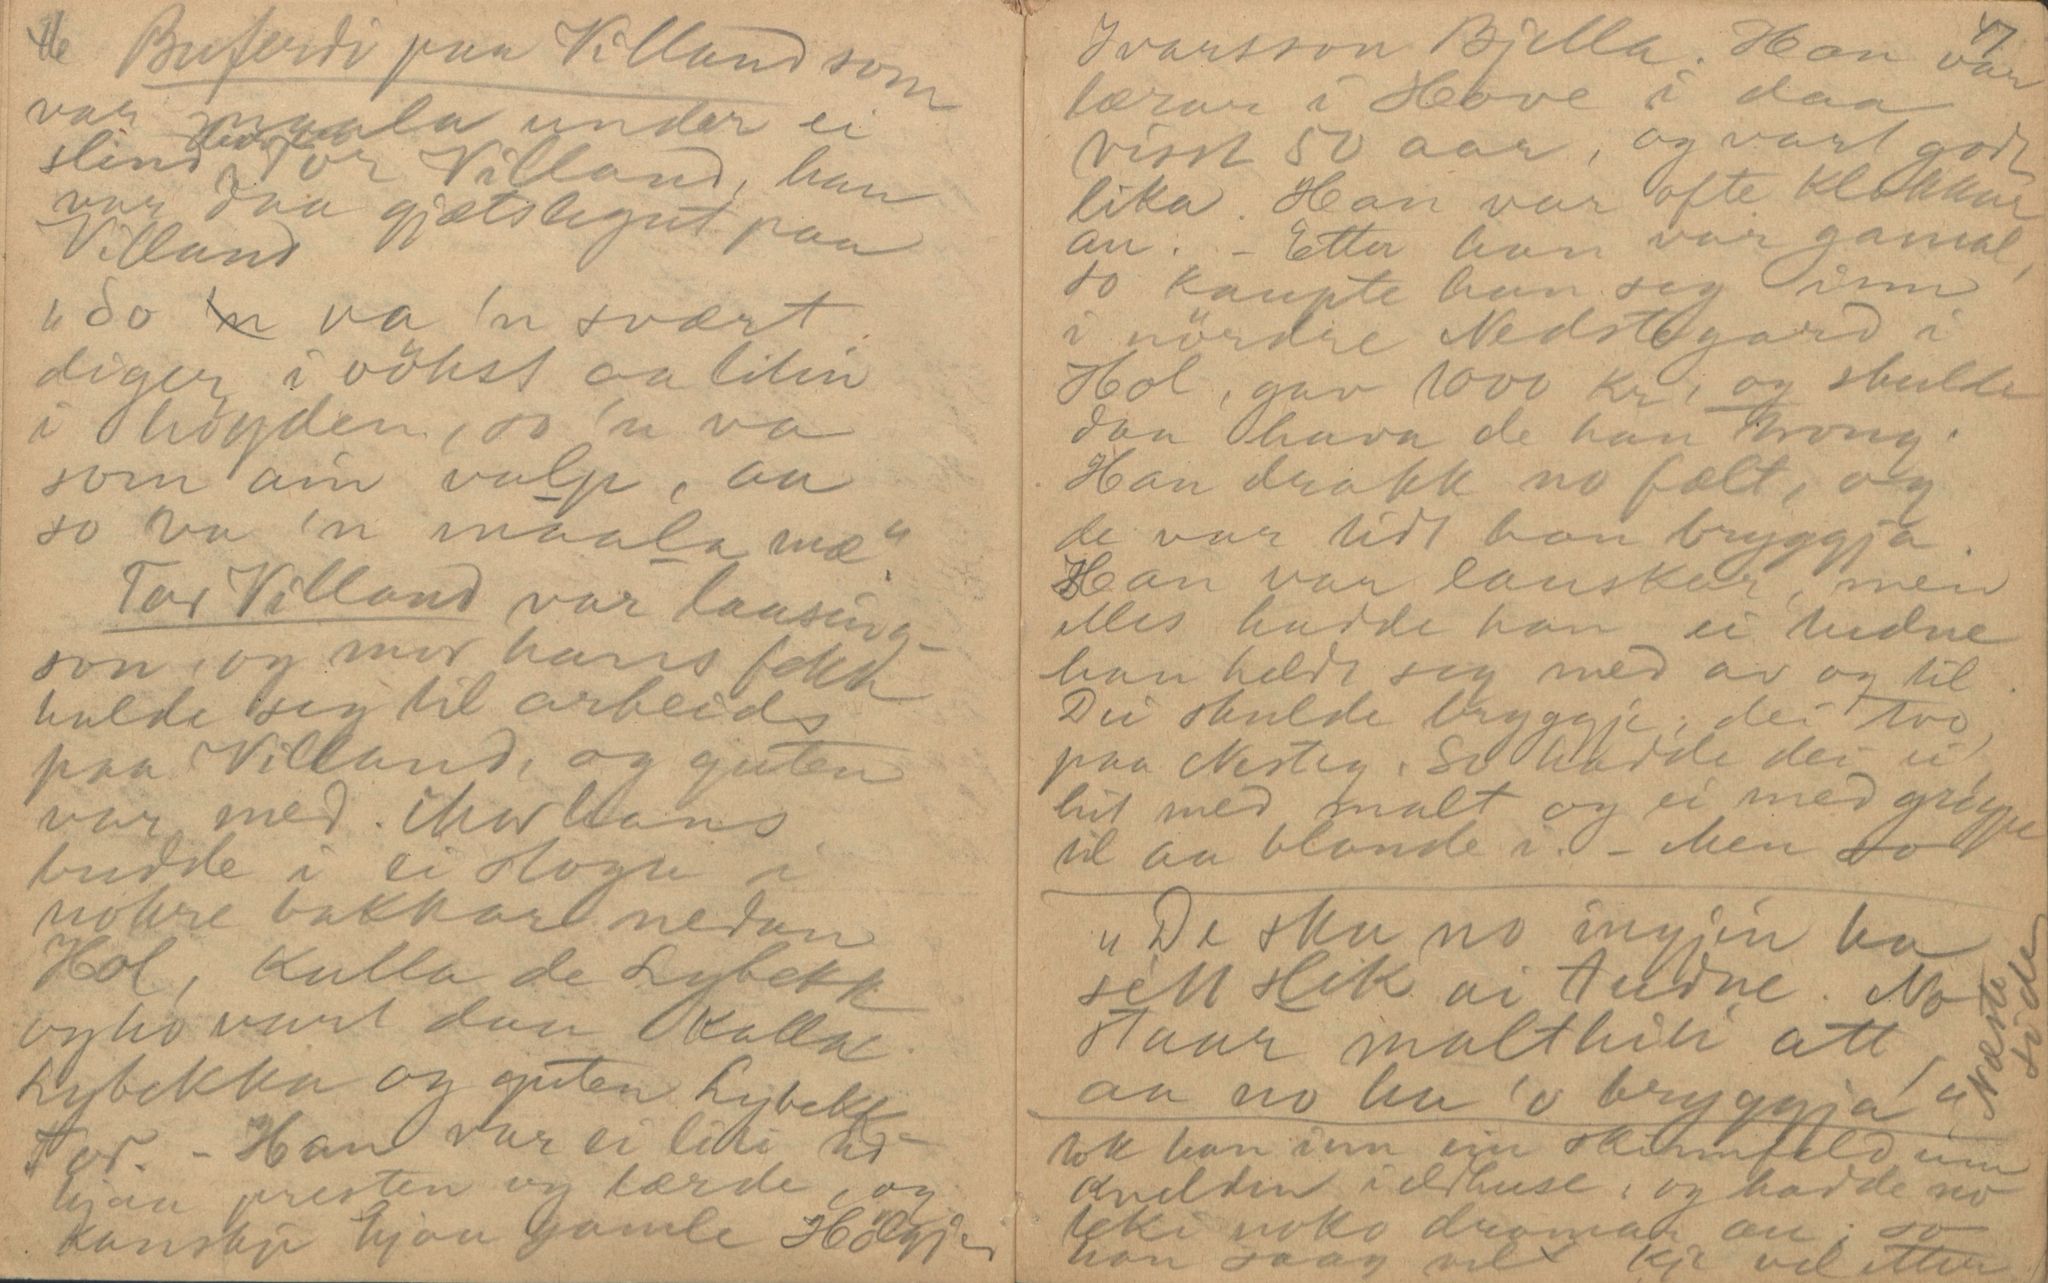 46
Buferdi paa Villand som
var maala under ei
slind over Tor Villand, han
var daa gjætslegut paa
Villand
"So 'n va 'n svært
diger i vökst aa litin
i högden, so 'n va
som ain valp, aa
so va 'n maala mæ"
Tor Villand var lausing-
son, og mor hans fekk
halde seg til arbeids
paa Villand, og guten
var med. Mor hans
budde i ei stogu i
nokre bakkar nedan
Hol, kalla de Lybekk
og ho vart daa kalla
Lybekka og guten Lybekk-
Tor. - Han var ei liti tid
hjaa presten og lærde, og
kanskje hjaa gamle Hölgje
47
Ivarsson Bjella. Han var
lærar i Hove i daa
visst 50 aar, og vart godt
lika. Han var ofte klokkar
au. - Etter han var gamal,
so kaupte han seg inn
i nördre Nedstegard i
Hol, gav 1000 kr, og skulde
daa hava de han trong.
Han drakk no fælt, og
de var tidt han bryggja.
Han var lauskar, men
elles hadde han ei tudne
han heldt seg med av og til.
Dei skulde bryggje, dei tvo,
paa Nesteg. So hadde dei ei
hit med malt og ei med grögpe
til aa blande i. - Men so
"De ska no ingjin ha
sétt slik ai tudne. No
staar malthiti att,
aa no ha 'o bryggja!"
Næste side
tok han inn ein skinnfeld um
kvelden i eldhuse, og hadde no
teki noko dramar au; so
han saag vel kje vel etter